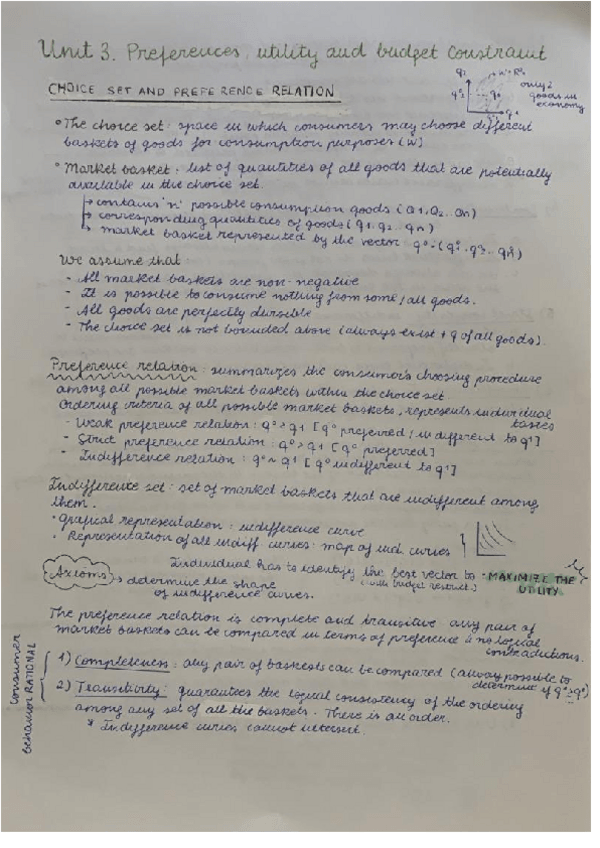 Unit 3. Preferences, utility and budget constraint
CHOICE SET AND PREFERENCE RELATION
only 2
goods in
economy
• The choice set: space in which consumers may choose different
baskets of goods for consumption purposes (W)
• Market basket: list of quantities of all goods that are potentially
available in the choice set.
→ contains 'n' possible consumption goods (Q1, Q2... Qn)
→ corresponding quantities of goods (q1, q2... qn)
→ market basket represented by the vector: q⁰ = (q⁰₁, q⁰₂... q⁰ₙ)
We assume that:
- All market baskets are non-negative
- It is possible to consume nothing from some/all goods.
- All goods are perfectly divisible
- The choice set is not bounded above (always exist + q of all goods).
Preference relation: summarizes the consumer's choosing procedure
among all possible market baskets within the choice set.
Ordering criteria of all possible market baskets, represents individual
tastes
- Weak preference relation: q⁰ ≥ q¹ [q⁰ preferred / indifferent to q¹]
- Strict preference relation: q⁰ > q¹ [q⁰ preferred]
- Indifference relation: q⁰ ~ q¹ [q⁰ indifferent to q¹]
Indifference set: set of market baskets that are indifferent among
them.
• Grafical representation: indifference curve
• Representation of all indiff. curves: map of ind. curves
Individual has to identify the best vector to MAXIMIZE THE
UTILITY
Axioms → determine the shape
of indifference curves.
The preference relation is complete and transitive any pair of
market baskets can be compared in terms of preference & no logical
contradictions.
Consumer
behavior RATIONAL
1) Completeness: any pair of baskets can be compared (always possible to
determine if q⁰ ≥ q¹)
2) Transitivity: guarantees the logical consistency of the ordering
among any set of all the baskets. There is an order.
* Indifference curves cannot intersect.